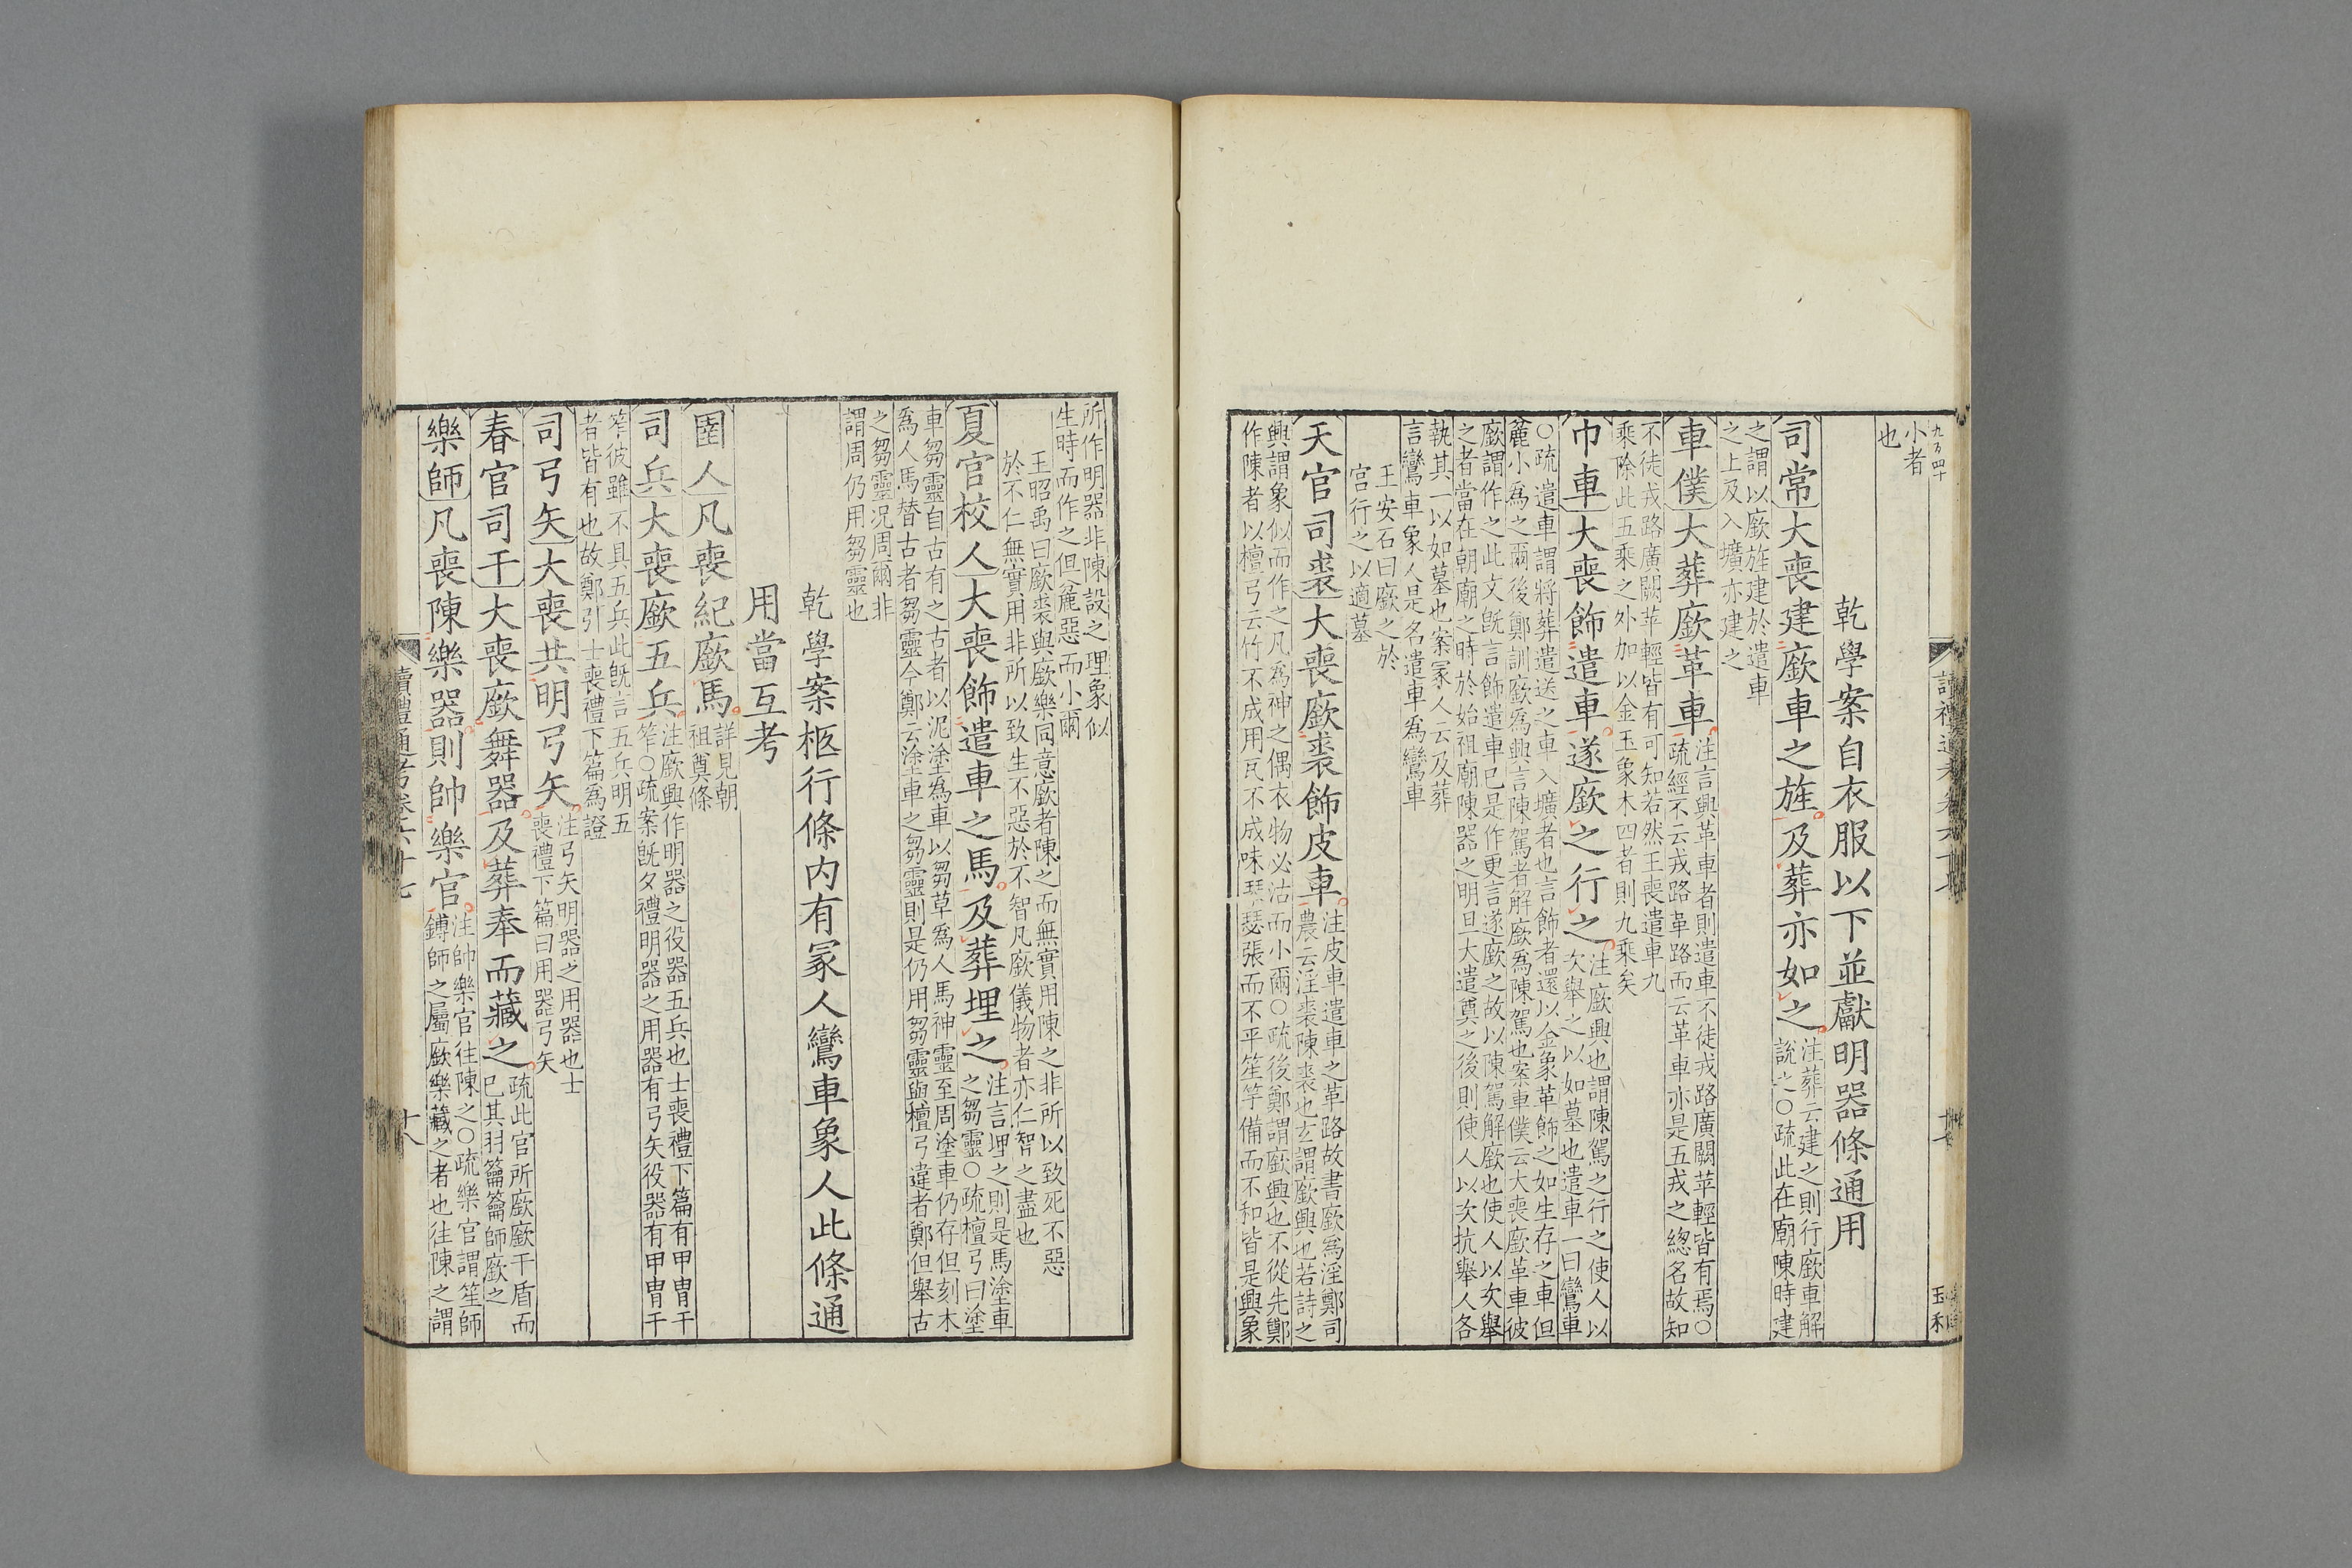 九万四十
小者
也
乾學案自衣服以下並獻明器條通用
司常大喪建廞車之旌及葬亦如之注葬云建之則行廞車解
說之○疏此在廟陳時建
之謂以廞旌建於遣車
之上及入壙亦建之
車僕大葬廞革車注言興革車者則遣車不徒戎路廣闕苹輕皆有焉○
疏經不云戎路革路而云革車亦是五戎之總名故知
不徒戎路廣闕苹輕皆有可知若然王喪遣車九
乘除此五乘之外加以金玉象木四者則九乘矣
巾車大喪飾遣車遂廞之行之注廞興也謂陳駕之行之使人以
次舉之以如墓也遣車一曰鸞車
○疏遣車謂將葬遣送之車入壙者也言飾者還以金象革飾之如生存之車但
麄小為之爾後鄭訓廞為興言陳駕者解廞為陳駕也案車僕云大喪廞革車彼
廞謂作之此文旣言飾遣車已是作更言遂廞之故以陳駕解廞也使人以次舉
之者當在朝廟之時於始祖廟陳器之明旦大遣奠之後則使人以次抗舉人各
執其一以如墓也案冢人云及葬
言鸞車象人是名遣車為鸞車
王安石曰廞之於
宮行之以適墓
天官司裘大喪廞裘飾皮車注皮車遣車之革路故書廞為淫鄭司
農云淫裘陳裘也玄謂廞興也若詩之
興謂象似而作之凡為神之偶衣物必沽而小爾○疏後鄭謂廞興也不從先鄭
作陳者以檀弓云竹不成用瓦不成味琴瑟張而不平笙竽備而不和皆是興象
讀禮通考卷六十七
所作明器非陳設之理象似
生時而作之但麄惡而小爾
王昭禹曰廞裘與廞樂同意廞者陳之而無實用陳之非所以致死不惡
於不仁無實用非所以致生不惡於不智凡廞儀物者亦仁智之盡也
夏官校人大喪飾遣車之馬及葬埋之注言埋之則是馬塗車
之芻靈○疏檀弓曰塗
車芻靈自古有之古者以泥塗為車以芻草為人馬神靈至周塗車仍存但刻木
為人馬替古者芻靈今鄭云塗車之芻靈則是仍用芻靈與檀弓違者鄭但舉古
之芻靈況周爾非
謂周仍用芻靈也
乾學案柩行條内有冢人鸞車象人此條通
用當互考
圉人凡喪紀廞馬詳見朝
祖奠條
司兵大喪廞五兵注廞興作明器之役器五兵也士喪禮下篇有甲冑干
笮○疏案旣夕禮明器之用器有弓矢役器有甲冑干
笮彼雖不具五兵此旣言五兵明五
者皆有也故鄭引士喪禮下篇為證
司弓矢大喪共明弓矢注弓矢明器之用器也士
喪禮下篇曰用器弓矢
春官司干大喪廞舞器及葬奉而藏之疏此官所廞廞干盾而
已其羽籥籥師廞之
樂師凡喪陳樂器則帥樂官注帥樂官往陳之○疏樂官謂笙師
鎛師之屬廞樂藏之者也往陳之謂
讀禮通考卷六十七
十八